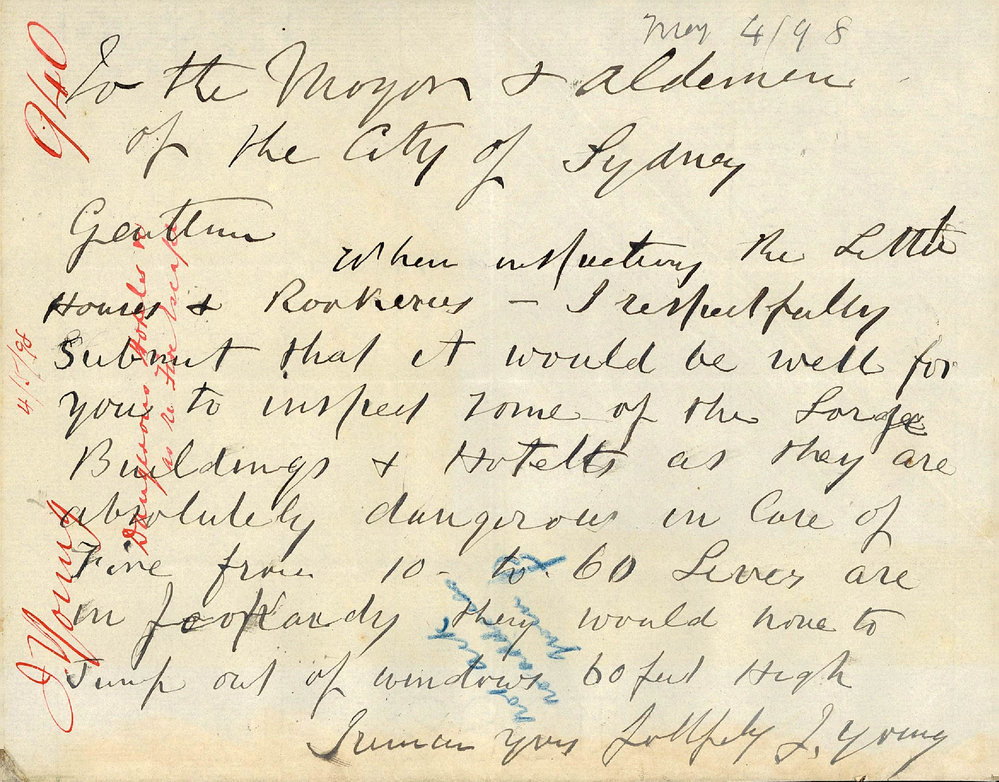 May 4/98
To the Mayor & Aldermen
of the City of Sydney
Gentlemen
When inspecting the Little
Houses & Rookeries – I respectfully
Submit that it would be well for
you to inspect some of the Large
Buildings & Hotells as they are
absolutely dangerous in Case of
Fire from 10 - to - 60 Lives are
in Jeopardy they would have to
Jump out of windows 60 feet High
I remain yours J. Young
940
4/5/98
Dangerous Hotels
as to fire escape
J Young